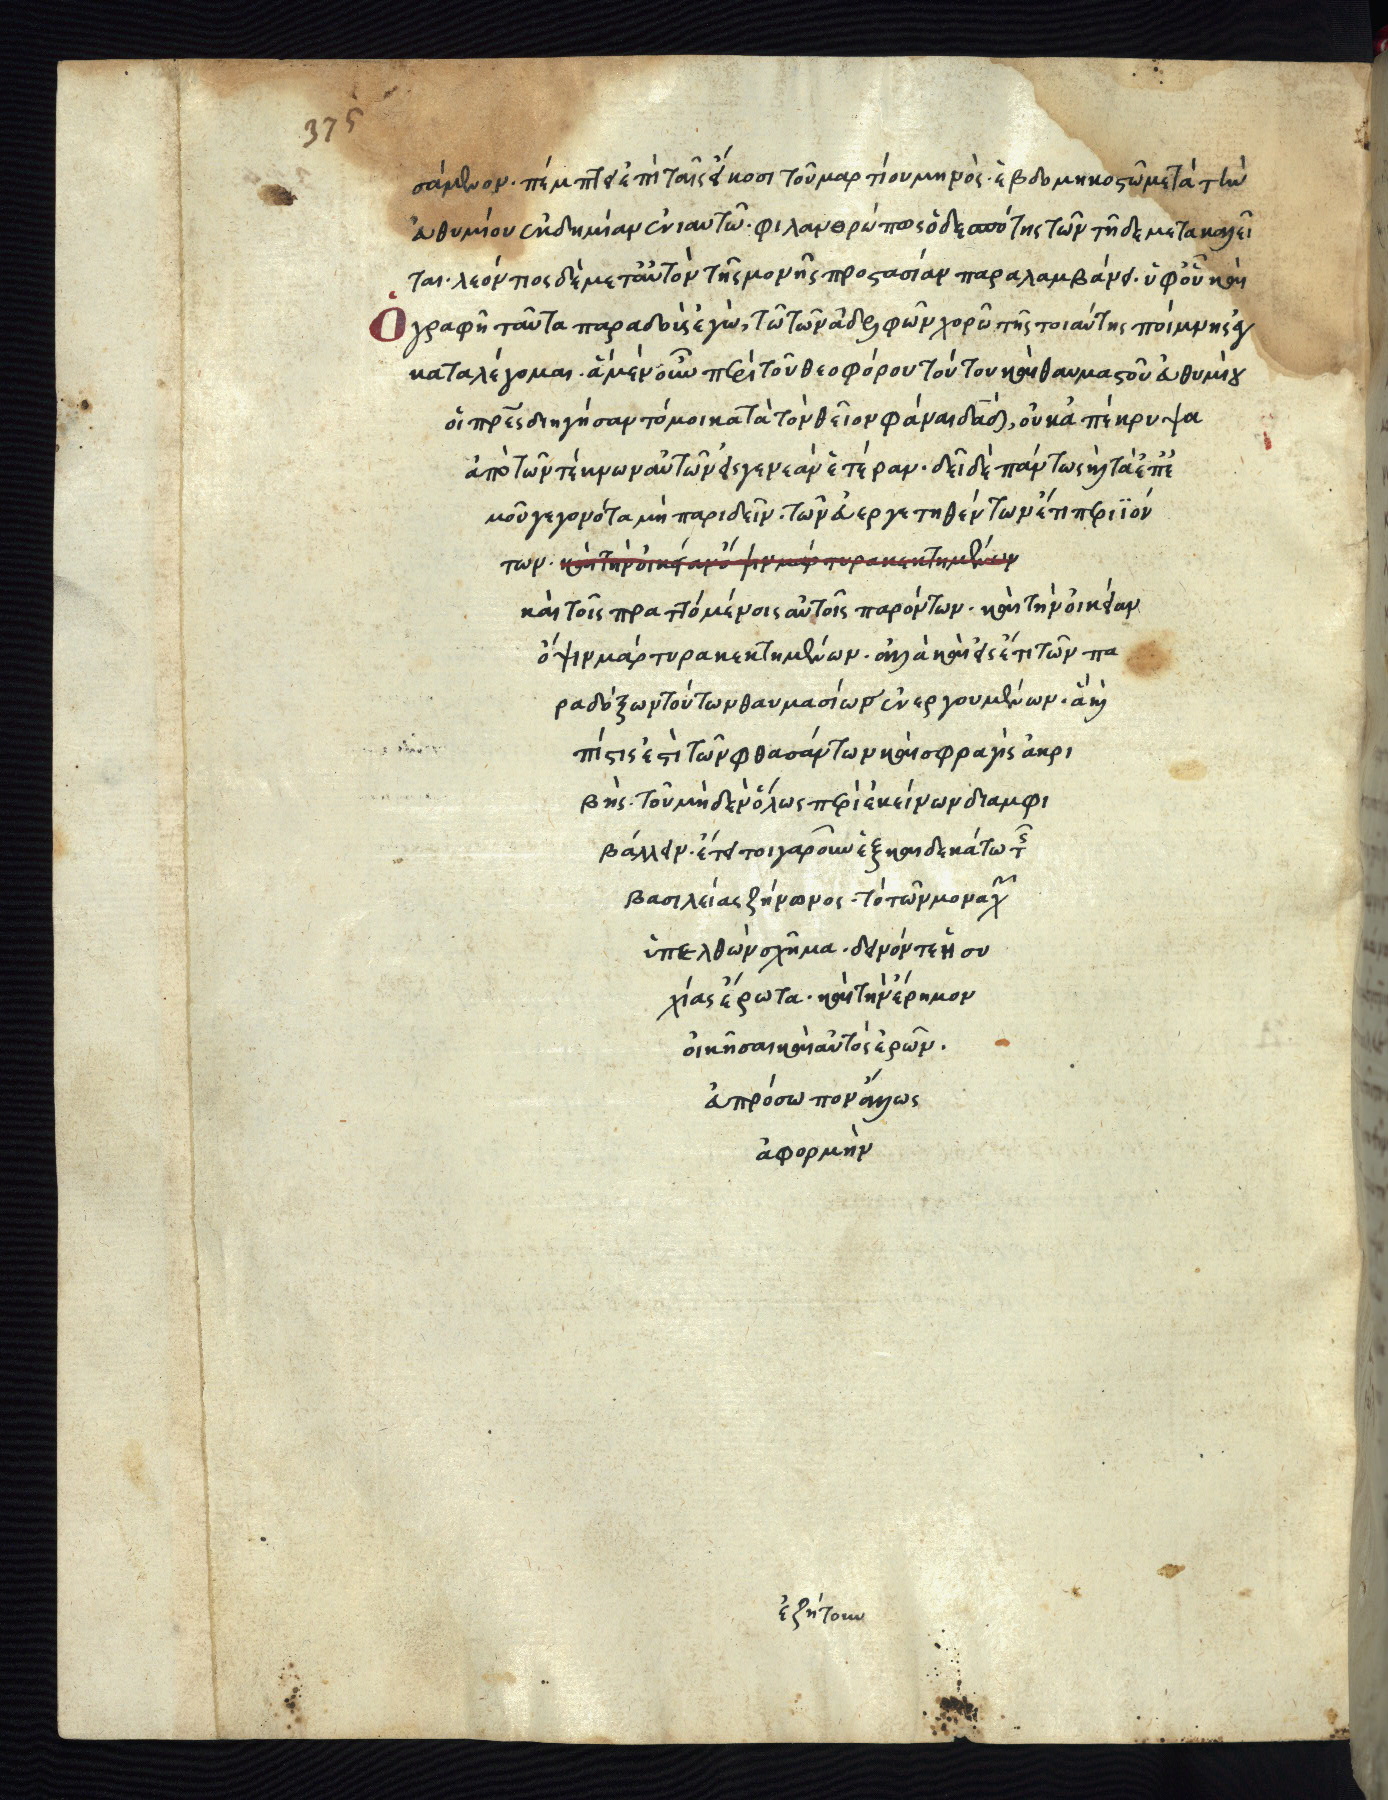 375
σάμενον· πέμπτει ἐπὶ ταῖς εἴκοσι τοῦ μαρτίου μηνὸς· ἑβδομηκοστῶ μετὰ τὴν
εὐθυμίου ἐνδημίαν ἐνιαυτῶ· φιλανθρώπως ὁ δεσπότης τῶν τῆδε μετακαλεῖ
ται· λεόντιος δὲ μετ' αὐτὸν τῆς μονῆς προστασίαν παραλαμβάνει· ὑφ' οὗ καὶ
Ὁ γραφῆ ταῦτα παραδοὺς ἐγὼ, τῶ τῶν ἀδελφῶν χορῶ τῆς τοιαύτης ποίμνης ἐγ
καταλέγομαι· ἃ μὲν οὖν περὶ τοῦ θεοφόρου τούτου καὶ θαυμαστοῦ εὐθυμίου
οἱ πρ̅ες διηγήσαντό μοι κατὰ τὸν θεῖον φάναι δα̅δ, οὐκ ἀπέκρυψα
ἀπὸ τῶν τέκνων αὐτῶν εἰς γενεὰν ἑτέραν· δεῖ δὲ πάντως καὶ τὰ ἐπ' ἐ
μοῦ γεγονότα μὴ παριδεῖν· τῶν εὐεργετηθέντων ἔτι περιϊόν
των· καὶ τὴν οἰκείαν ὄψιν μάρτυρα κεκτημένων
καὶ τοῖς πραττόμένοις αὐτοῖς παρόντων· καὶ τὴν οἰκείαν
ὄψιν μάρτυρα κεκτημένων· ἀλλὰ καὶ εἰς ἔτι τῶν πα
ραδόξων τούτων θαυμασίως ἐνεργουμένων· ἃ καὶ
πίστις ἐστὶ τῶν φθασάντων καὶ σφραγὶς ἀκρι
βὴς· τοῦ μηδὲν ὅλως περὶ ἐκείνων διαμφι
βάλλειν· ἔτει τοιγαροῦν ἑξκαιδεκάτω τῆς
βασιλείας ζήνωνος· τὸ τῶν μοναχῶν
ὑπελθὼν σχῆμα· δεινόν τε ἡσυ
χίας ἔρωτα· καὶ τὴν ἔρημον
οἰκῆσαι καὶ αὐτὸς ἐρῶν·
εὐπρόσωπον ἄλλως
ἀφορμὴν
ἐζήτουν